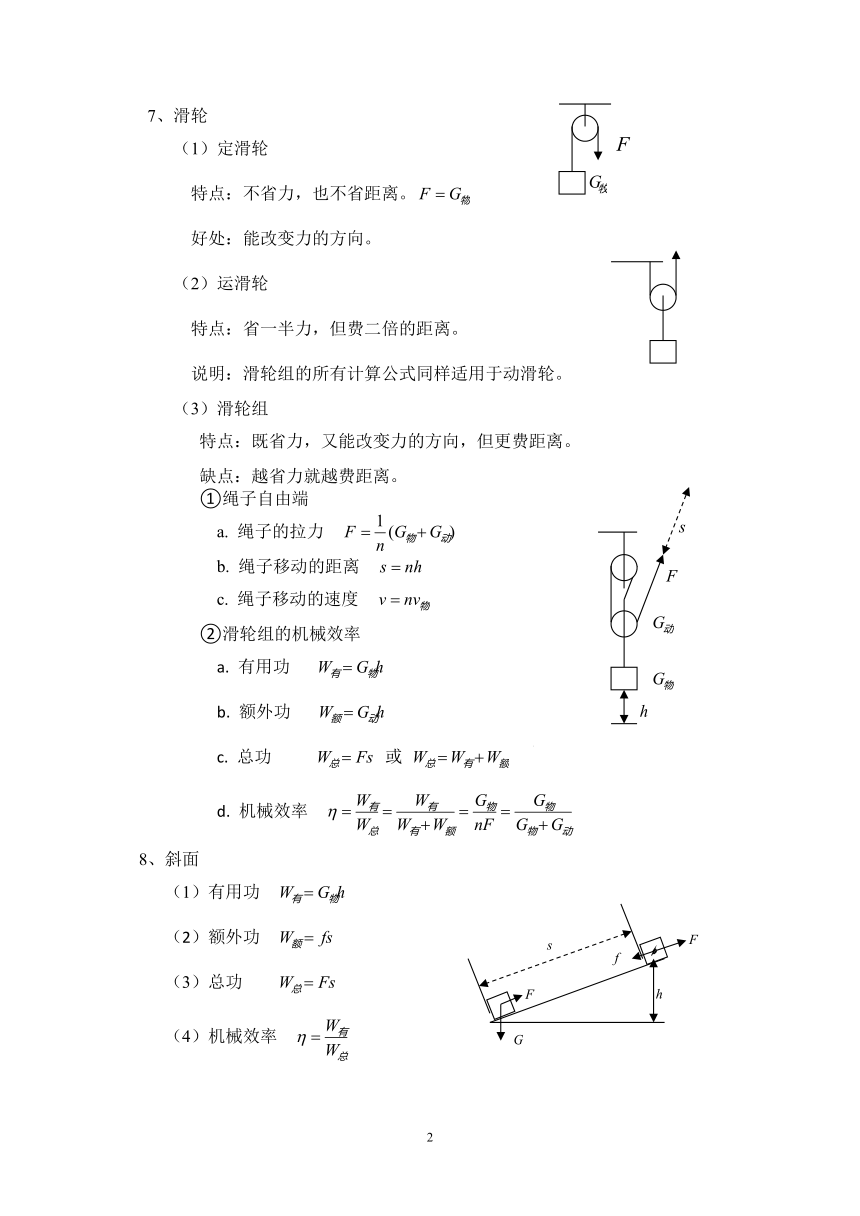 7、滑轮
（1）定滑轮
F
特点：不省力，也不省距离。F = G物
G物
好处：能改变力的方向。
（2）运滑轮
特点：省一半力，但费二倍的距离。
说明：滑轮组的所有计算公式同样适用于动滑轮。
（3）滑轮组
特点：既省力，又能改变力的方向，但更费距离。
缺点：越省力就越费距离。
①绳子自由端
a. 绳子的拉力 F = 1/n (G物 + G动)
s
b. 绳子移动的距离 s = nh
F
c. 绳子移动的速度 v = nv物
G动
②滑轮组的机械效率
a. 有用功 W有 = G物h
G物
b. 额外功 W额 = G动h
h
c. 总功 W总 = Fs 或 W总 = W有 + W额
d. 机械效率 η = W有/W总 = W有/(W有 + W额) = G物/nF = G物/(G物 + G动)
8、斜面
（1）有用功 W有 = G物h
（2）额外功 W额 = fs
s
f
F
（3）总功 W总 = Fs
F
h
（4）机械效率 η = W有/W总
G
2